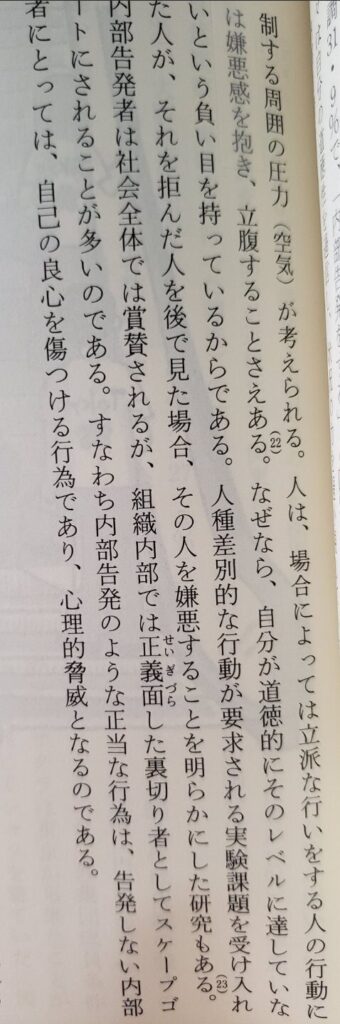 制する周囲の圧力（空気）が考えられる。人は、場合によっては立派な行いをする人の行動に
は嫌悪感を抱き、立腹することさえある。(22)なぜなら、自分が道徳的にそのレベルに達していな
いという負い目を持っているからである。人種差別的な行動が要求される実験課題を受け入れ
た人が、それを拒んだ人を後で見た場合、その人を嫌悪することを明らかにした研究もある。(23)
内部告発者は社会全体では賞賛されるが、組織内部では正義面せいぎづらした裏切り者としてスケープゴ
ートにされることが多いのである。すなわち内部告発のような正当な行為は、告発しない内部
者にとっては、自己の良心を傷つける行為であり、心理的脅威となるのである。